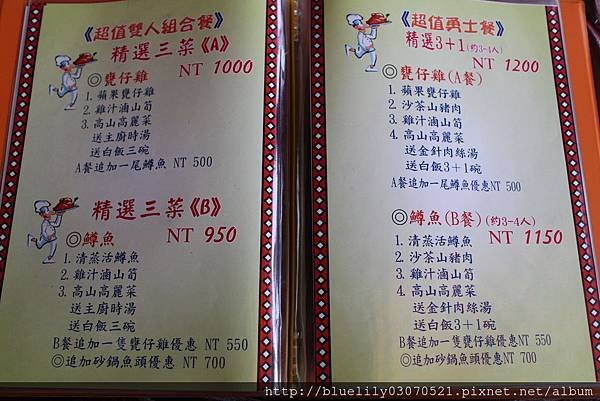 《超值雙人組合餐》
精選三菜《A》
NT 1000
◎甕仔雞
1. 蘋果甕仔雞
2. 雞汁滷山筍
3. 高山高麗菜
送主廚時湯
送白飯三碗
A餐追加一尾鱒魚 NT 500
精選三菜《B》
NT 950
◎鱒魚
1. 清蒸活鱒魚
2. 雞汁滷山筍
3. 高山高麗菜
送主廚時湯
送白飯三碗
B餐追加一隻甕仔雞優惠 NT 550
◎追加砂鍋魚頭優惠 NT 700
《超值勇士餐》
精選3+1(約3-4人)
NT 1200
◎甕仔雞(A餐)
1. 蘋果甕仔雞
2. 沙茶山豬肉
3. 雞汁滷山筍
4. 高山高麗菜
送金針肉絲湯
送白飯3+1碗
A餐追加一尾鱒魚優惠NT 500
◎鱒魚(B餐)(約3-4人)
NT 1150
1. 清蒸活鱒魚
2. 沙茶山豬肉
3. 雞汁滷山筍
4. 高山高麗菜
送金針肉絲湯
送白飯3+1碗
B餐追加一隻甕仔雞優惠NT 550
◎追加砂鍋魚頭優惠NT 700
http://bluelily03070521.pixnet.net/album